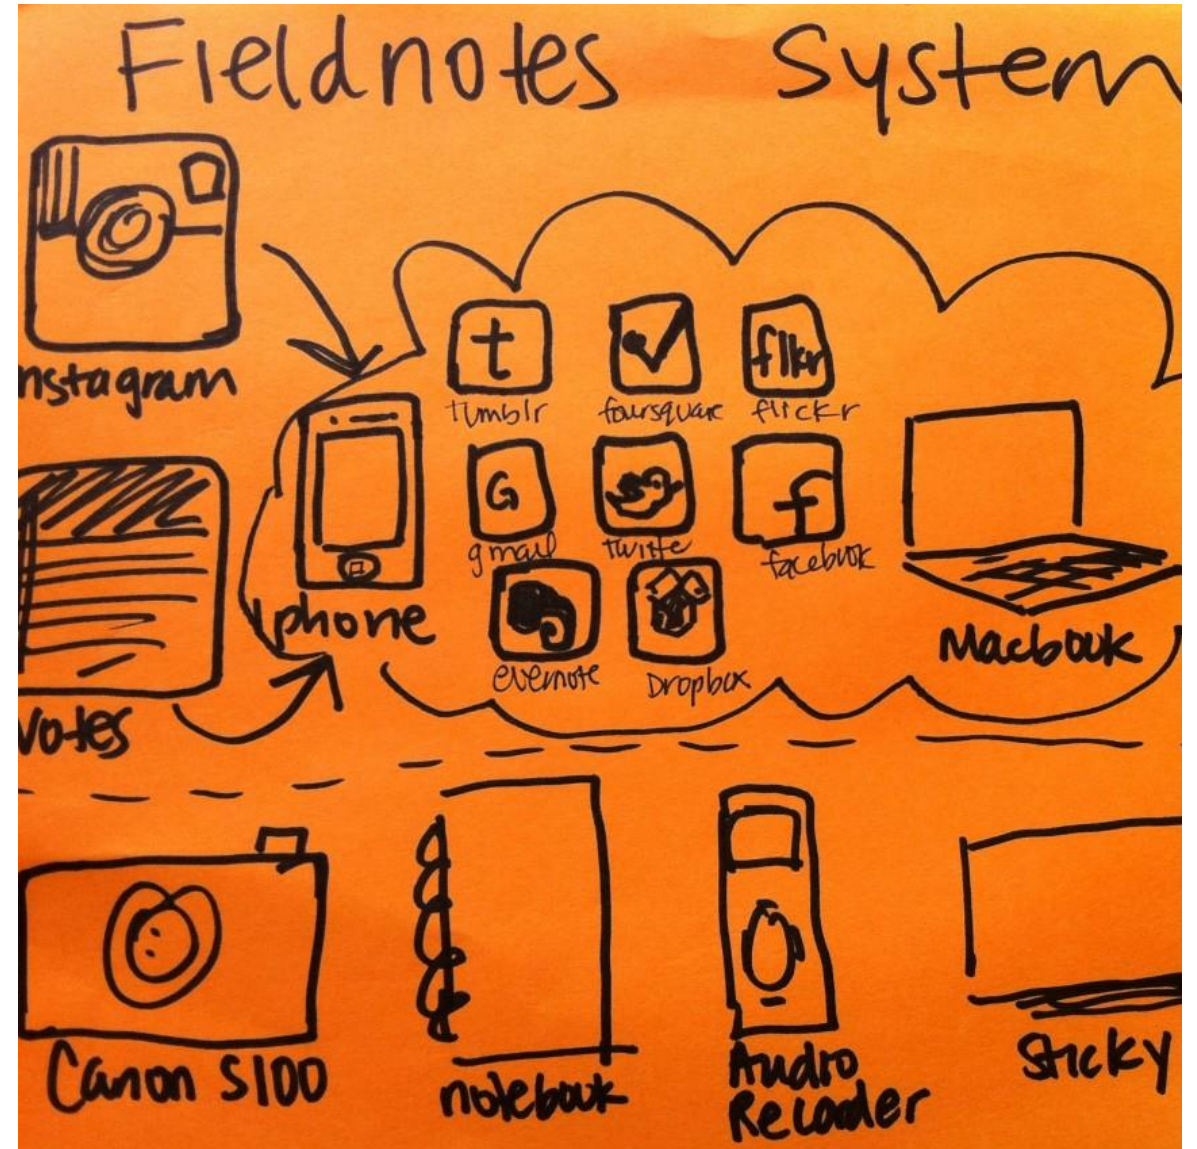 Fieldnotes System
nstagram
t
flkr
tumblr foursquare flickr
G
f
gmail twitte facebook
Iphone
Macbook
evernote Dropbox
Notes
Canon S100
notebook
Audio
Recorder
Sticky